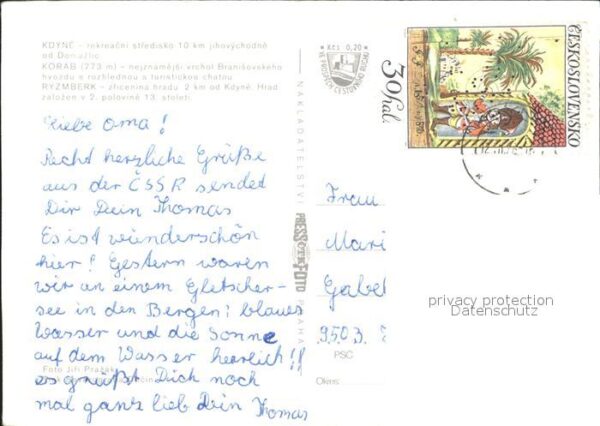 KDYNĚ - rekreační středisko 10 km jihovýchodně
od Domažlic
KORAB (773 m) - nejznámější vrchol Branišovského
hvozdu s rozhlednou a turistickou chatou
RÝZMBERK - zřícenina hradu 2 km od Kdyně. Hrad
založen v 2. polovině 13. století
Liebe Oma!
Recht herzliche Grüße
aus der ČSSR sendet
Dir Dein Thomas
Es ist wunderschön
hier! Gestern waren
wir an einem Gletscher-
see in den Bergen: blaues
Wasser und die Sonne
auf dem Wasser herrlich!!
es grüßt Dich noch
mal ganz lieb Dein Thomas
Foto Jiří Pražák
NAKLADATELSTVÍ
PRESSFOTO
PRAHA
Kčs 0,20
VE PROSPĚCH CESTOVNÍHO RUCHU
30 hal
ČESKOSLOVENSKO
Frau
Mari
Gabel
9503
PSČ
Okres:
privacy protection
Datenschutz